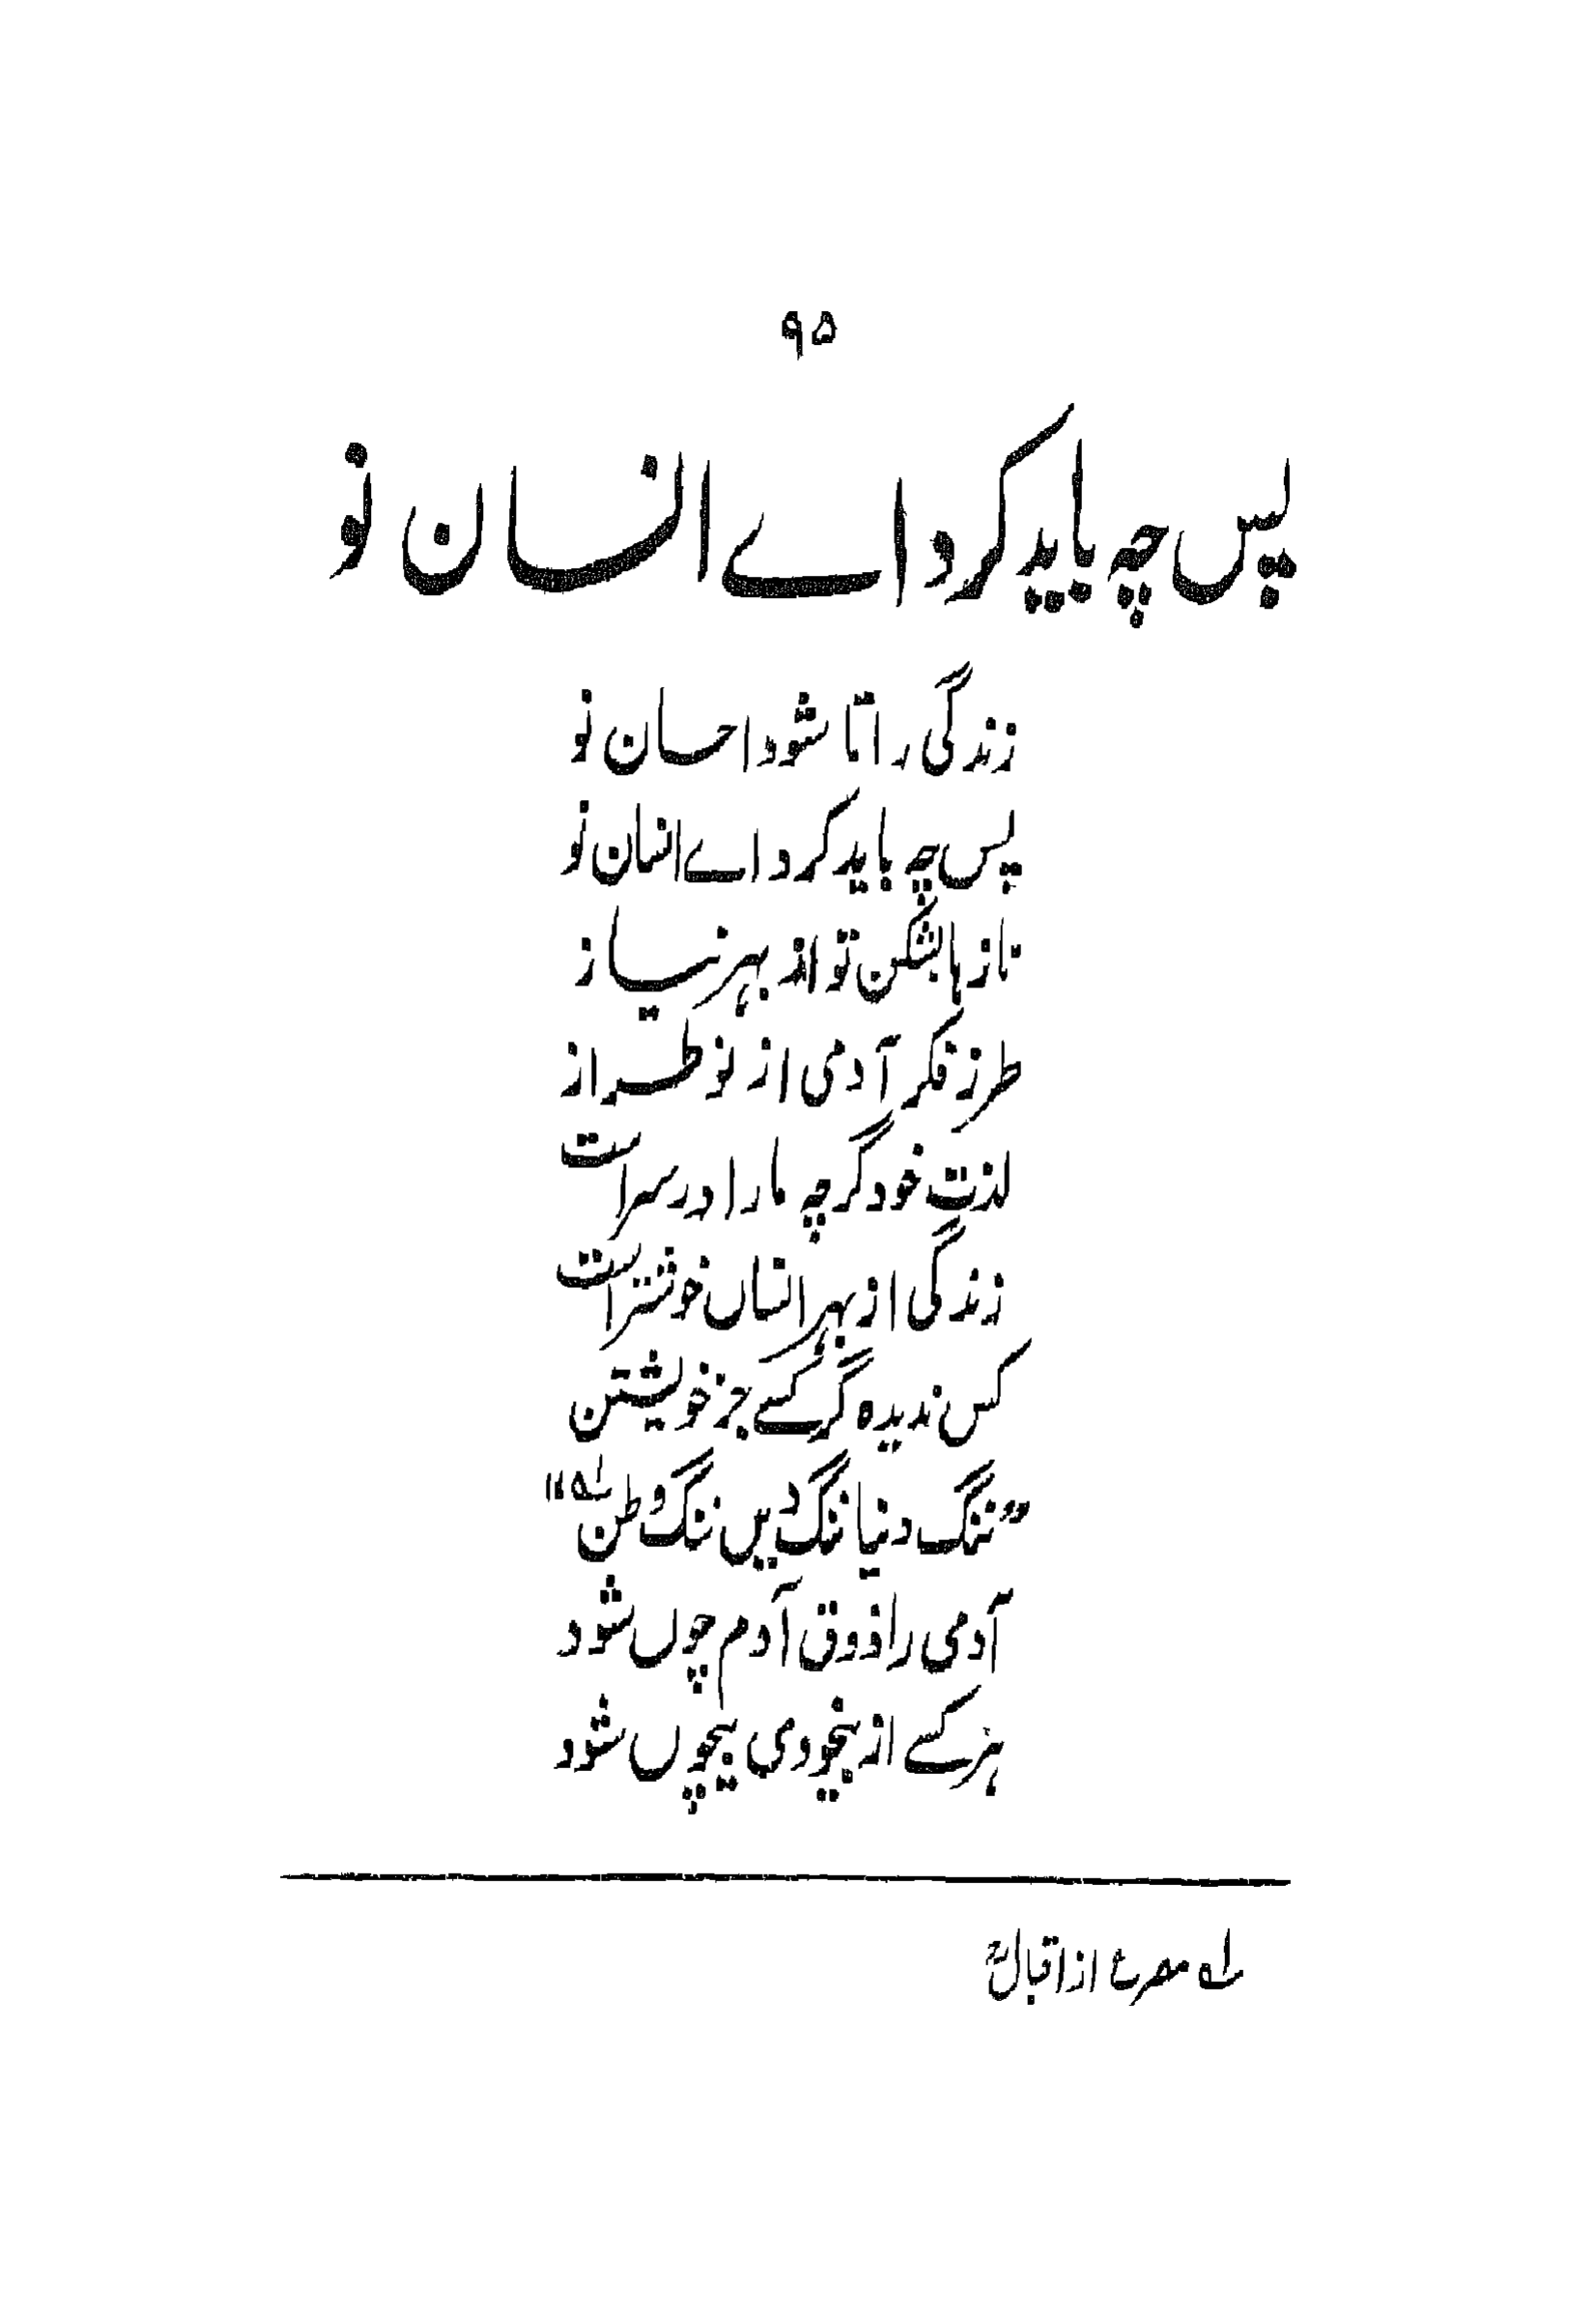 ۹۵
پس چہ باید کرد اے انسان نو
زندگی را تا شود احسان نو
پس چہ باید کرد اے انسان نو
ناز ہا بشکن تو از بہر نیاز
طرز فکر آدمی از نو طراز
لذت خود گرچہ مارا در سر است
زندگی از بہر انساں خوشتر است
کس ندیدہ گر کسے جز خویشتن
"ننگ دنیا ننگ دیں ننگ وطن ؁۱"
آدمی را ذوق آدم چوں شود
ہر کسے از بیخودی بیچوں شود
؁۱ مصرع از اقبالؒ